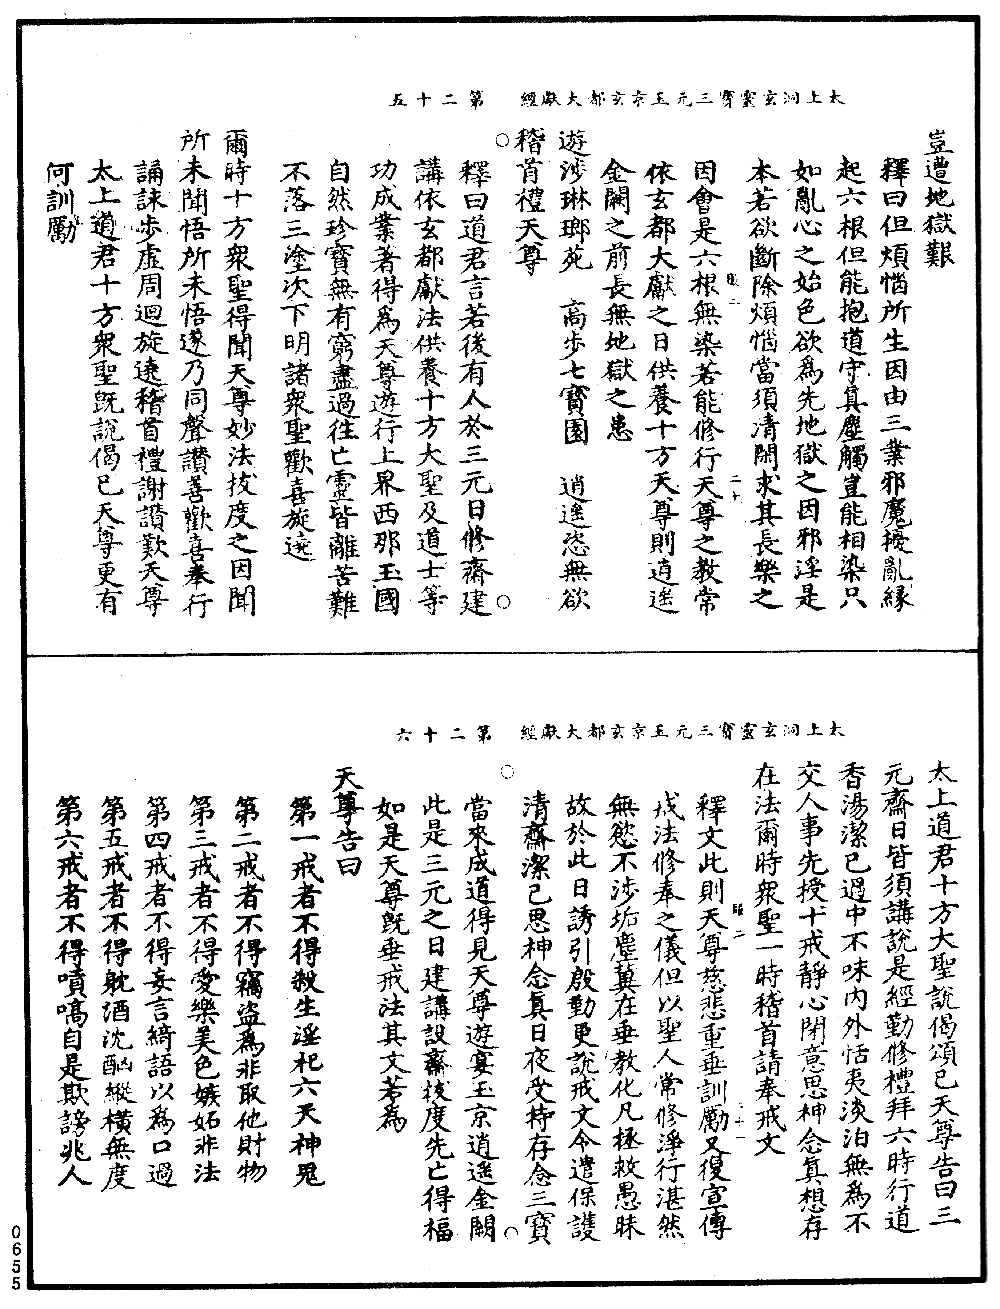 太上洞玄靈寶三元玉京玄都大獻經　第二十五
豈遭地獄艱
釋曰但煩惱所生因由三業邪魔擾亂緣
起六根但能抱道守真塵觸豈能相染只
如亂心之始色欲為先地獄之因邪淫是
本若欲斷除煩惱當須清閑求其長樂之
因會是六根無染若能修行天尊之教常
依玄都大獻之日供養十方天尊則逍遙
金闕之前長無地獄之患
遊涉琳瑯苑　高步七寶園　逍遙恣無欲
稽首禮天尊
釋曰道君言若後有人於三元日修齋建
講依玄都獻法供養十方大聖及道士等
功成業著得為天尊遊行上界西那玉國
自然珍寶無有窮盡過往亡靈皆離苦難
不落三塗次下明諸眾聖歡喜旋遶
爾時十方眾聖得聞天尊妙法拔度之因聞
所未聞悟所未悟遂乃同聲讚善歡喜奉行
誦詠步虛周迴旋遶稽首禮謝讚歎天尊
太上道君十方眾聖既說偈已天尊更有
何訓勵
太上洞玄靈寶三元玉京玄都大獻經　第二十六
太上道君十方大聖說偈頌已天尊告曰三
元齋日皆須講說是經勤修禮拜六時行道
香湯潔已過中不味內外恬夷淡泊無為不
交人事先授十戒靜心閉意思神念真想存
在法爾時眾聖一時稽首請奉戒文
釋文此則天尊慈悲重垂訓勵又復宣傳
戒法修奉之儀但以聖人常修淨行湛然
無慾不涉垢塵冀在垂教化凡拯救愚昧
故於此日誘引慇勤更說戒文令遣保護
清齋潔已思神念真日夜受持存念三寶
當來成道得見天尊遊宴玉京逍遙金闕
此是三元之日建講設齋拔度先亡得福
如是天尊既垂戒法其文若為
天尊告曰
第一戒者不得殺生淫祀六天神鬼
第二戒者不得竊盜為非取他財物
第三戒者不得愛樂美色嫉妬非法
第四戒者不得妄言綺語以為口過
第五戒者不得躭酒沈酗縱橫無度
第六戒者不得嗔嗃自是欺謗兆人
0655